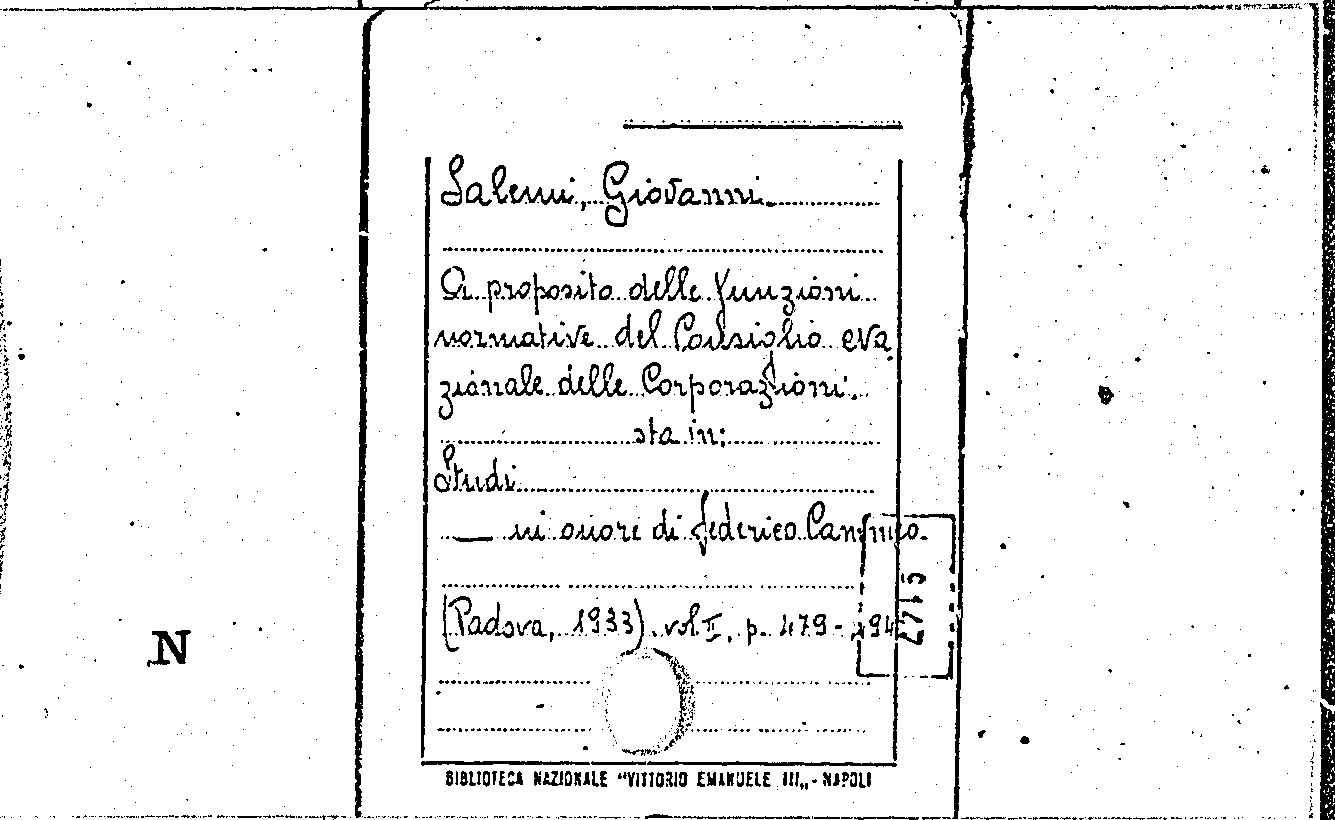 Salemi, Giovanni.
A proposito delle funzioni
normative del Consiglio Na
zionale delle Corporazioni.
sta in:
Studi
— in onore di Federico Cammeo.
(Padova, 1933). vol. II, p. 479-494
N
BIBLIOTECA NAZIONALE "VITTORIO EMANUELE III„ - NAPOLI